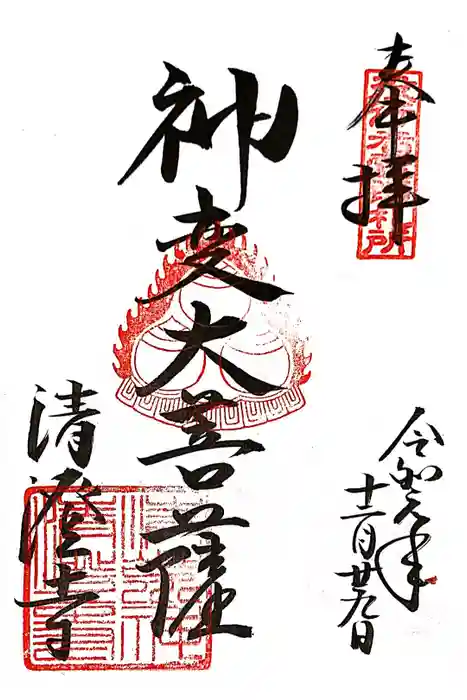 奉拝
令和元年
十二月廿九日
神変大菩薩
清澄寺